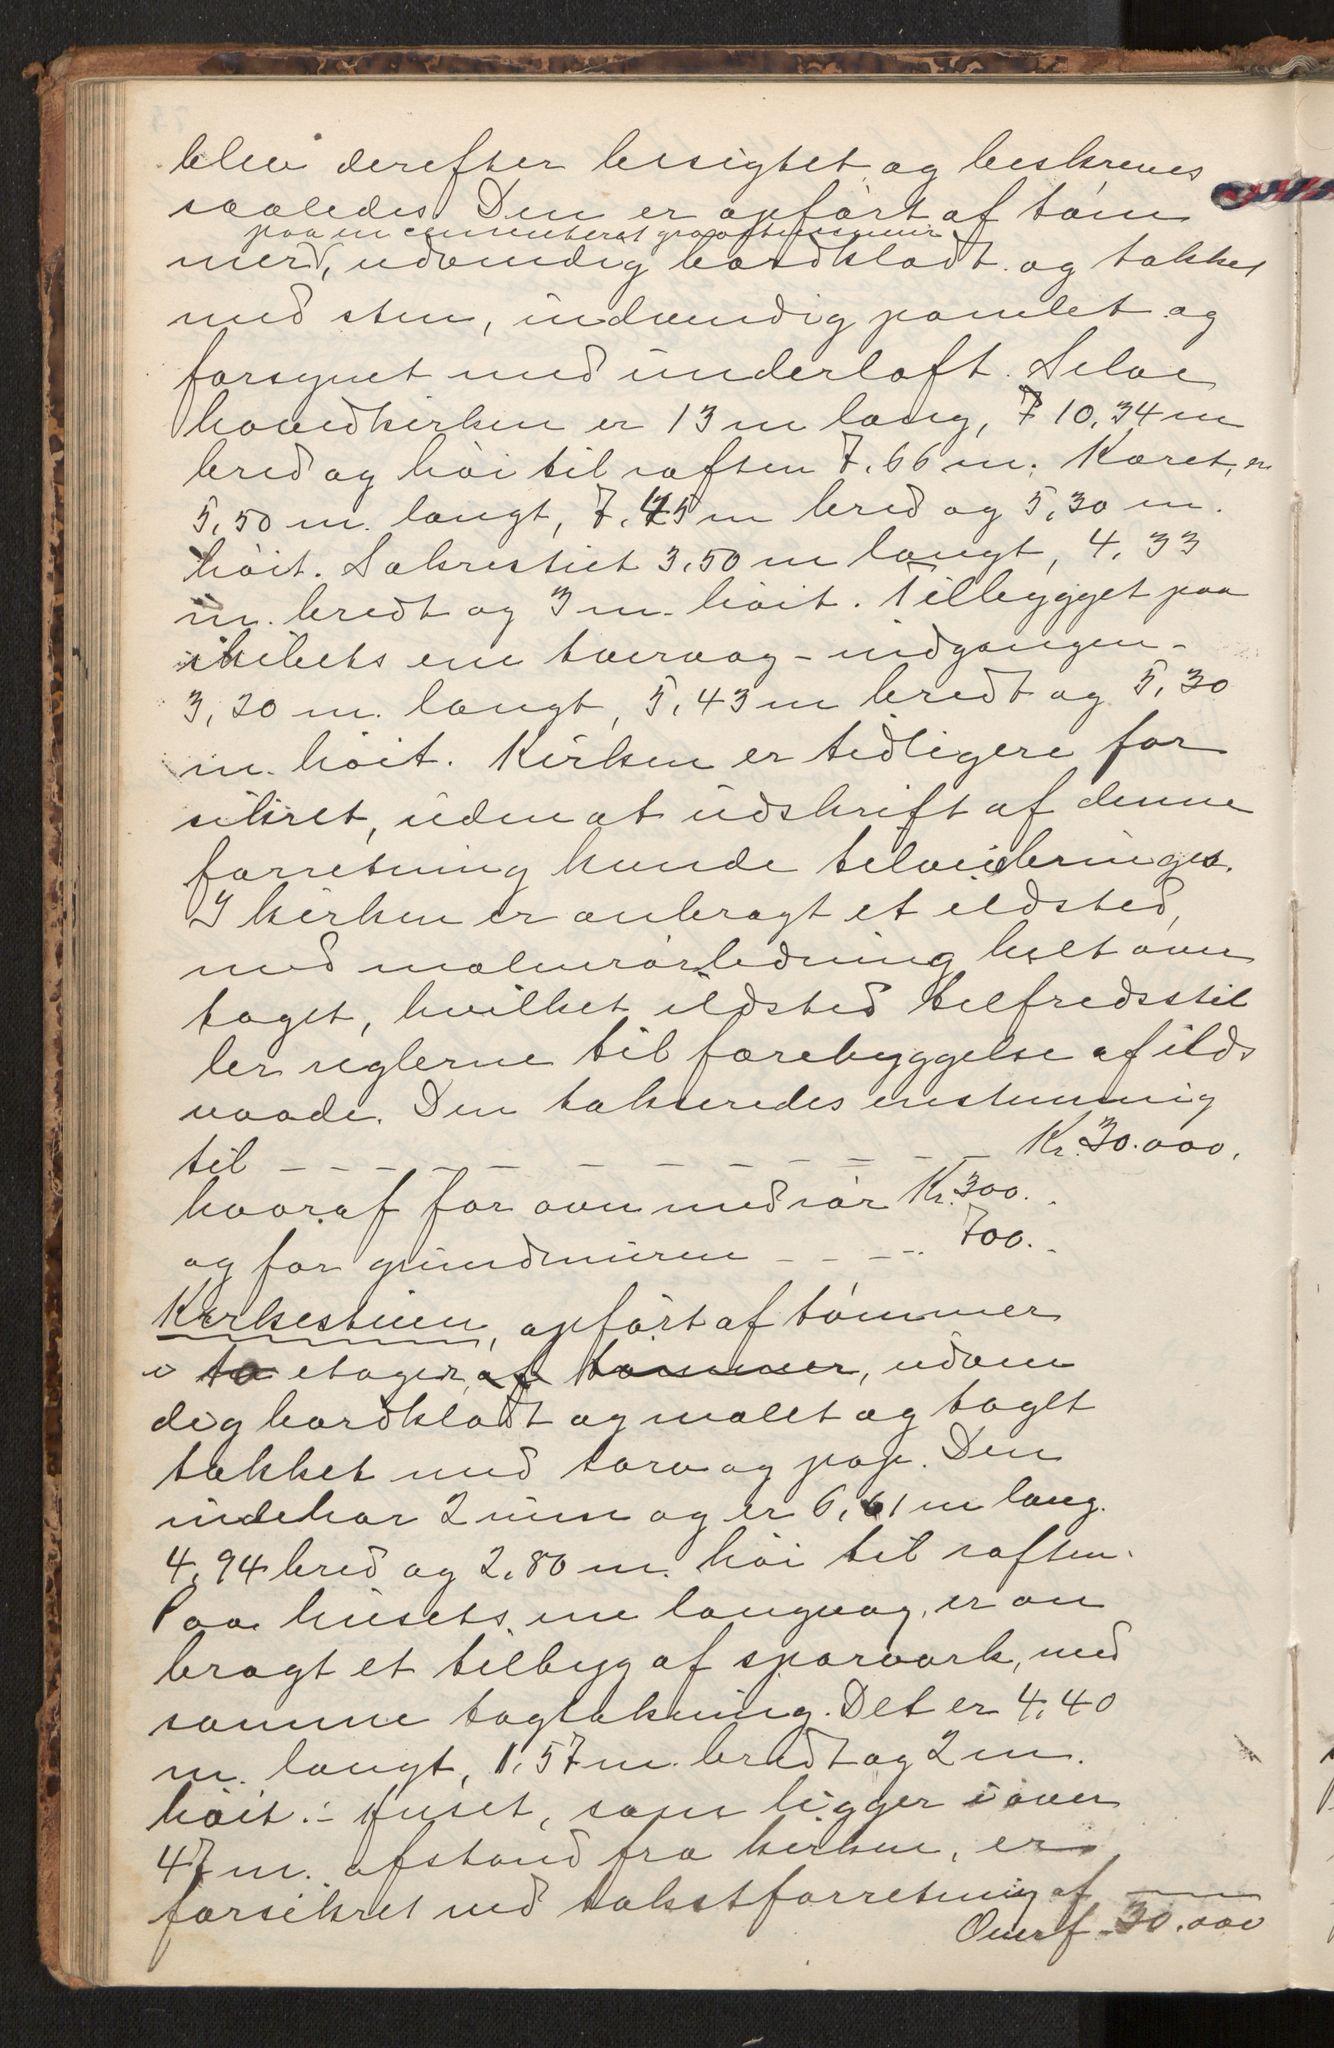 blev derefter besigtet og beskreves
saaledes Den er opført af tøm
paa en cementeret graastensmur
mer, udvendig bordklædt og tækket
med sten, indvendig panelet og
forsynet med underloft. Selve
hovedkirken er 13 m lang, 7 10,34 m
bred og høi til raften 7.66 m. Koret er
5,50 m. langt, 7.45 m bred og 5,30 m.
høit. Sakrestiet 3,50 m langt, 4,33
m. bredt og 3 m. høit. Tilbygget paa
skibets ene tværvæg - indgangen -
3,20 m. langt, 5,43 m bredt og 5,30
m. høit. Kirken er tidligere for
sikret, uden at udskrift af denne
forretning kunde tilveiebringes.
I kirken er anbragt et ildsted,
med malmrørledning helt over
taget, hvilket ildsted tilfredsstil
ler reglerne til forebyggelse af ilds
vaade. Den takseredes enstemmig
til – – – – – – – – – – – Kr. 30.000.
hvoraf for ovn med rør Kr. 300.
og for grundmuren – – – – 700.
Kirkestuen, opført af tømmer
i to etager af tømmer, udven
dig bordklædt og malet og taget
tækket med torv og pap. Den
indehar 2 rum og er 6,61 m lang.
4,94 bred og 2,80 m. høi til raften.
Paa husets ene langvæg er an
bragt et tilbyg af sparværk, med
samme tagtækning. Det er 4,40
m. langt, 1,57 m. bredt og 2 m.
høit. - Huset, som ligger i over
47 m. afstand fra kirken, er
forsikret ved takstforretning af
Overf. 30.000